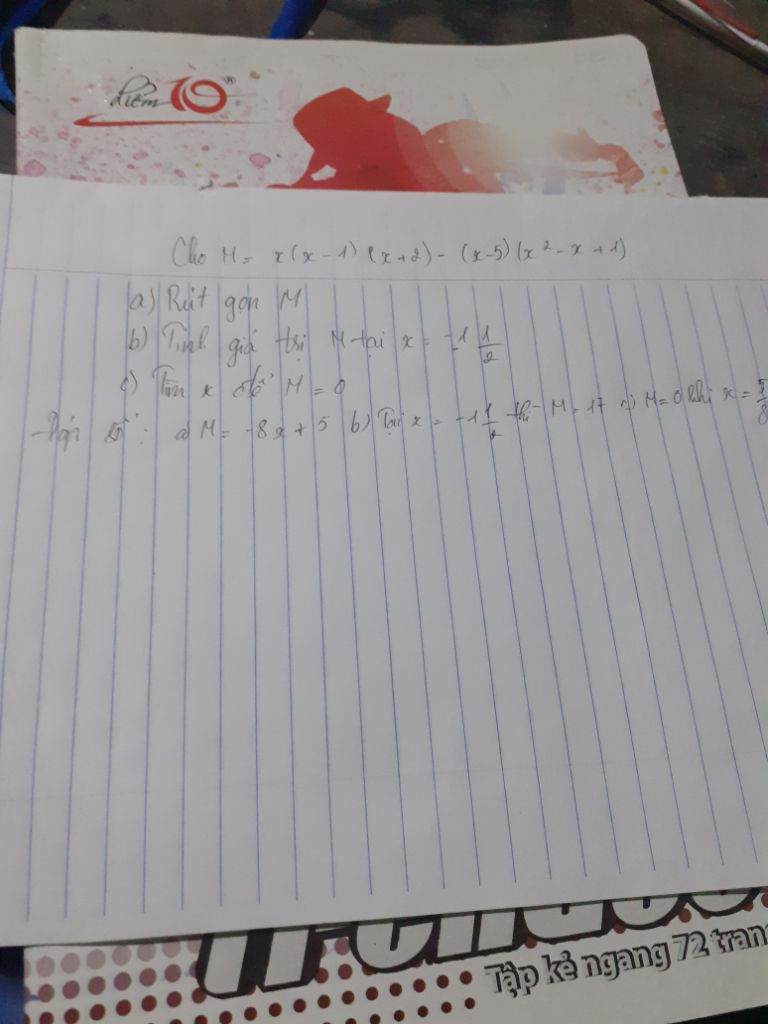 điểm 10®
Cho M = x(x-1)(x+2) - (x-5)(x² - x + 1)
a) Rút gọn M
b) Tính giá trị M tại x = -1 1/2
c) Tìm x để M = 0
Đáp số: a) M = -8x + 5 b) Tại x = -1 1/2 thì M = 17 c) M = 0 khi x = 5/8
Tập kẻ ngang 72 trang